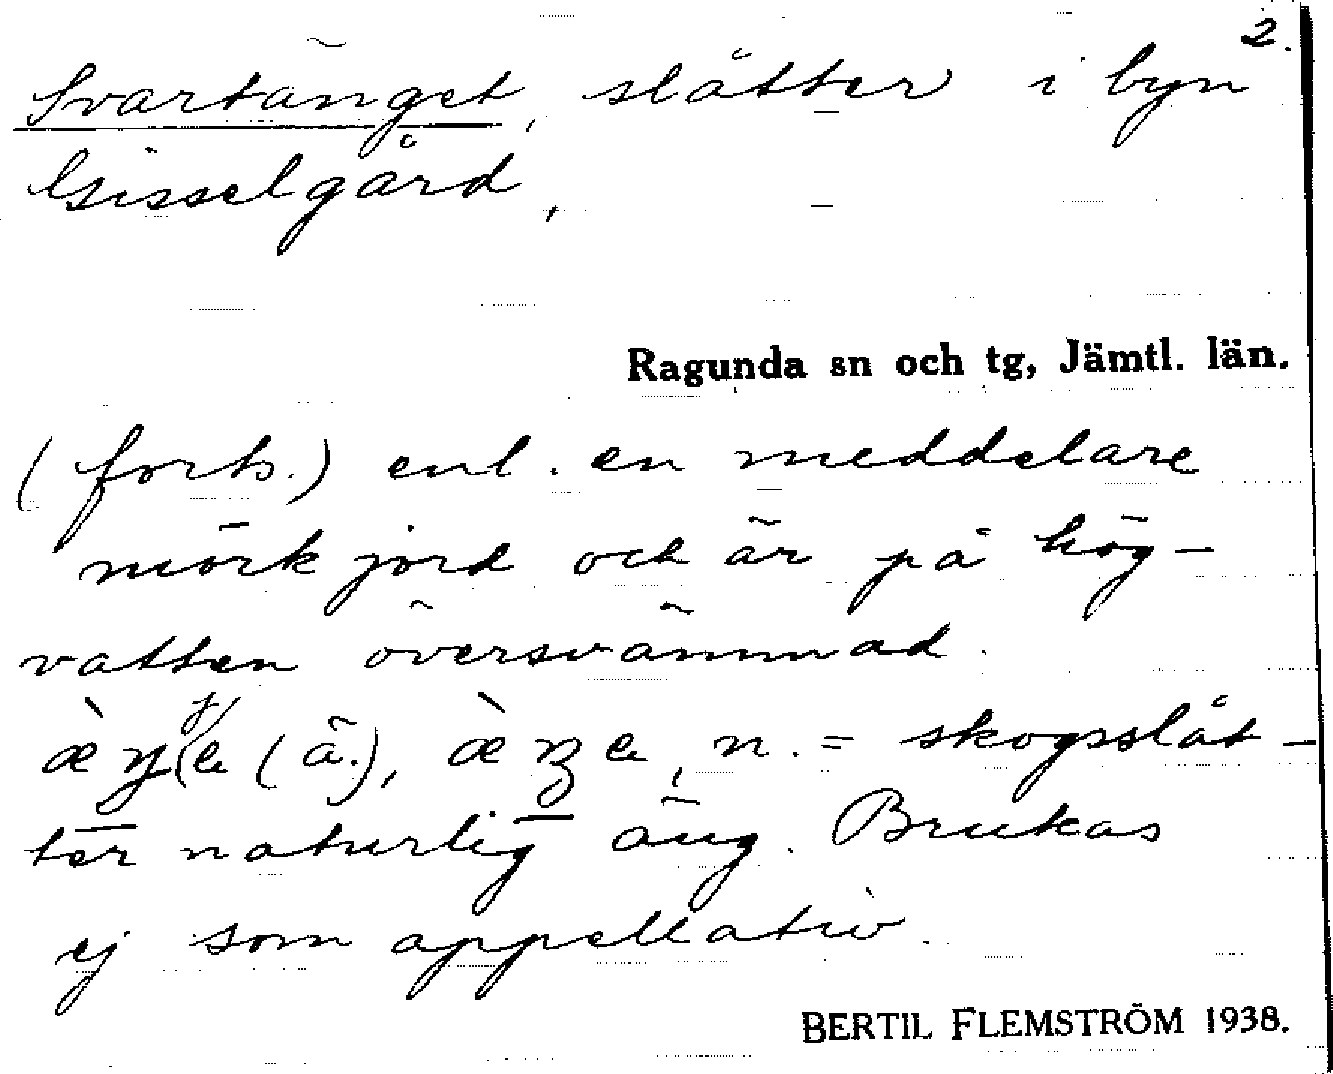 2.
Svartänget, slåtter i byn
Gisselgård,
Ragunda sn och tg, Jämtl. län.
(forts.) enl. en meddelare
mörk jord och är på hög-
vatten översvämmad.
(ä.), n. = skogsslåt-
ter naturlig äng. Brukas
ej som appellativ.
BERTIL FLEMSTRÖM 1938.